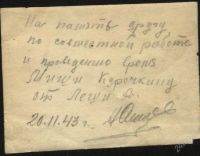 На память другу
по совместной работе
и проведению время
Миши Курочкину
от Леши
20.11.43 г.